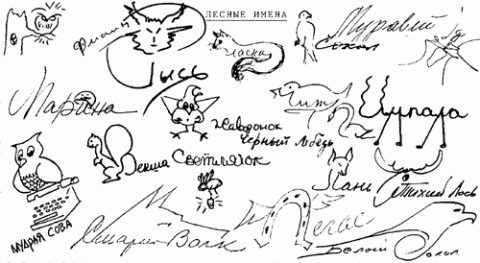 ЛЕСНЫЕ ИМЕНА
Филин
Рысь
Ласка
Сокол
Муравей
Марьяна
Жаворонок
Чёрный Лебедь
Чит
Цикала
Векша
Светлячок
Лань
Тихий Лось
МУДРАЯ СОВА
Старый Волк
Пегас
Белый Сокол